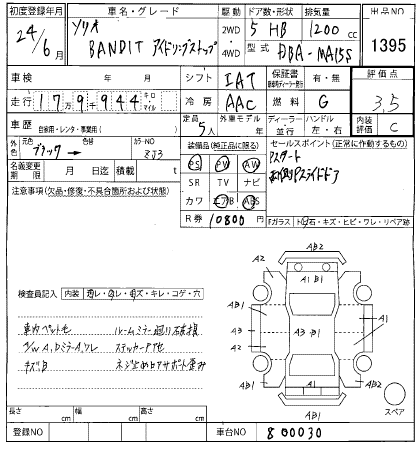 初度登録年月 車名・グレード 駆動 ドア数・形状 排気量 出品NO
24/6月 ソリオ 2WD 5 HB 1200cc
BANDIT アイドリングストップ 4WD 型式 DBA-MA15S 1395
車検 年 月 シフト IAT 保証書 有・無 評価点
走行 17万9千944キロ マイル 冷房 AAC 燃料 G 3.5
車歴 自家用・レンタ・事業用( ) 定員 5人 外車モデル 年 ディーラー 並行 ハンドル 左・右 内装評価 C
外色 元色 ブラック → 色替 カラーNO ZJ3
装備品(純正品に限る) セールスポイント(正常に作動するもの)
PS PW AW Pスタート
名義変更期限 月 日迄 積載 t SR TV ナビ
注意事項(欠品・修復・不具合箇所および状態) カワ エアB ABS
R券 10800円 Fガラス トビ石・キズ・ヒビ・ワレ・リペア跡
検査員記入 内装
車内ペット毛 ルームミラー廻り破損
キズ、B ネジ止めRアサポート歪み
AB2
A2
A1 B1
AB1
A2
A3
A3 B1
A1
A2
AB1
A1
AB1
スペア
長さ cm 幅 cm 高さ cm
登録NO 車台NO 800030